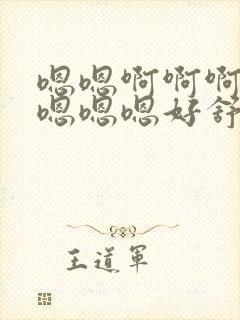 嗯嗯啊啊啊
嗯嗯嗯好舒
王道军